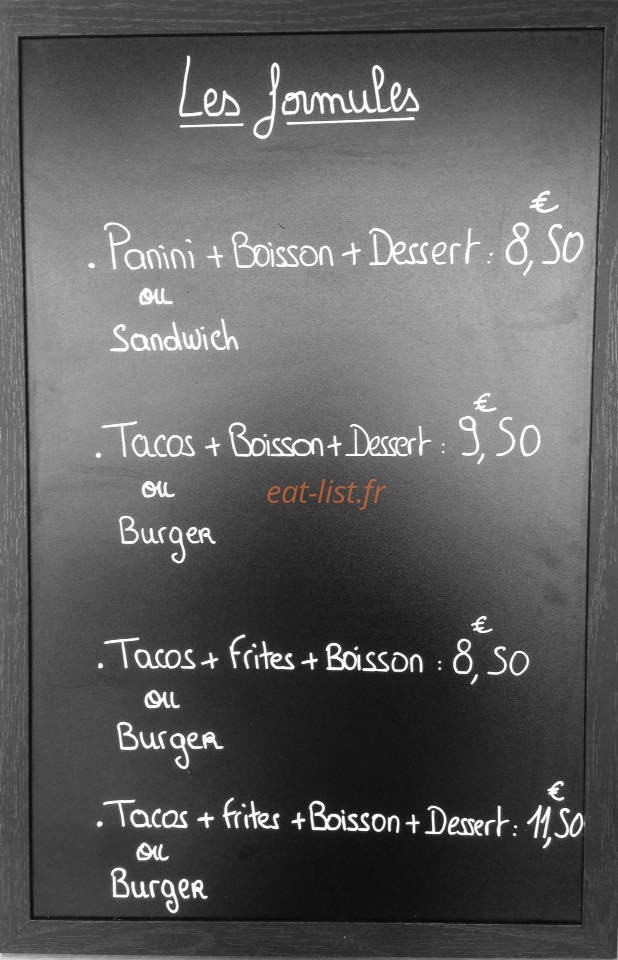 Les formules
€
. Panini + Boisson + Dessert : 8,50
ou
Sandwich
€
. Tacos + Boisson + Dessert : 9,50
ou
eat-list.fr
Burger
€
. Tacos + frites + Boisson : 8,50
ou
Burger
€
. Tacos + frites + Boisson + Dessert : 11,50
ou
Burger